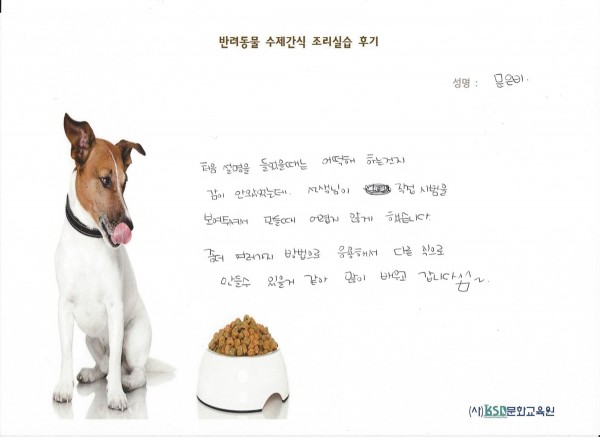 반려동물 수제간식 조리실습 후기
성명 : 문은비.
처음 설명을 들었을때는 어떡해 하는건지
감이 안왔었는데. 선생님이 직접 시범을
보여주셔서 만들때 어렵지 않게 했습니다.
좀더 여러가지 방법으로 응용해서 다른 식으로
만들수 있을거 같아 많이 배우고 갑니다^^~
(사)KSD문화교육원